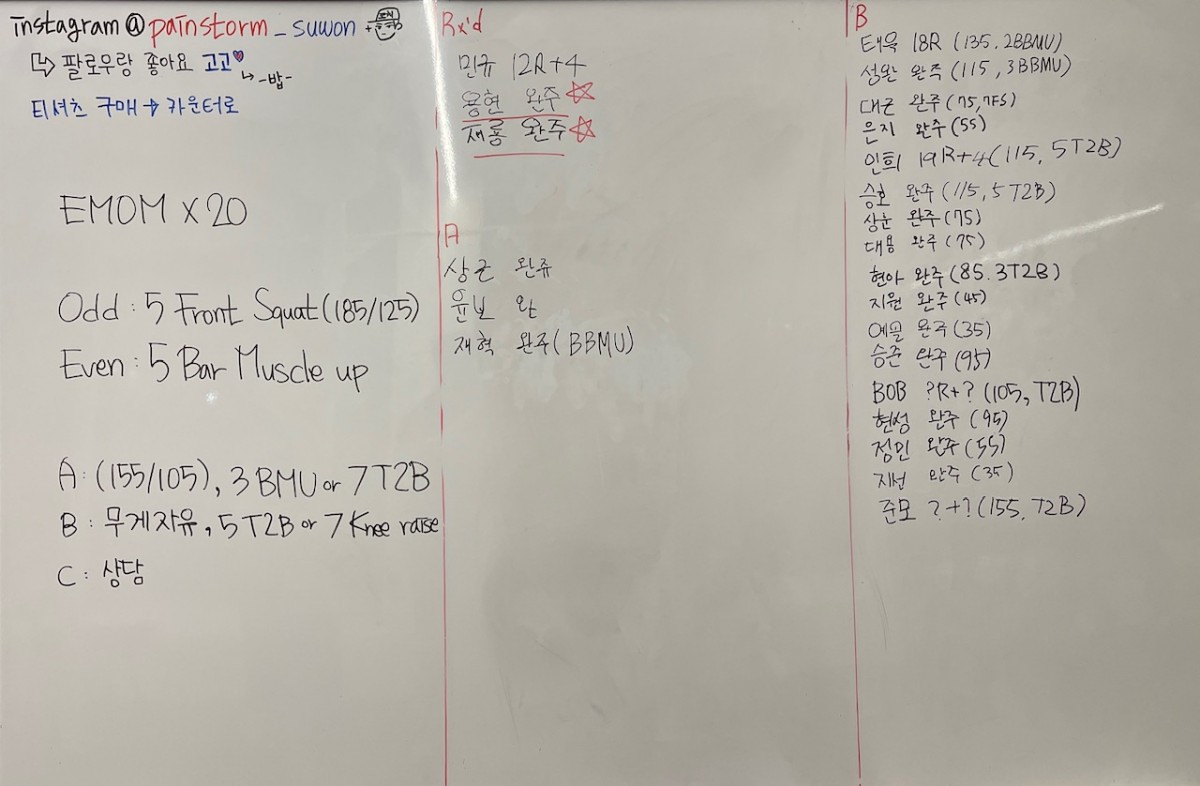 instagram @ painstorm_suwon
↳ 팔로우랑 좋아요 고고♥
↳ -밥-
티셔츠 구매 → 카운터로
EMOM x 20
Odd : 5 Front Squat (185/125)
Even : 5 Bar Muscle up
A : (155/105), 3 BMU or 7 T2B
B : 무게자유, 5 T2B or 7 Knee raise
C : 상담
Rx'd
민규 12R+4
용현 완주 ☆
재룡 완주 ☆
A
상근 완쥬
윤보 완
재혁 완주 (BBMU)
B
태욱 18R (135, 2BBMU)
성완 완쥭 (115, 3BBMU)
대근 완주 (75, 7FS)
은지 완주 (55)
인희 19R+4 (115, 5T2B)
승호 완주 (115, 5T2B)
상훈 완주 (75)
대용 완주 (75)
현아 완주 (85. 3T2B)
지원 완주 (45)
예슬 완주 (35)
승준 완주 (95)
BOB ?R+? (105, T2B)
현성 완주 (95)
정민 완주 (55)
지선 완주 (35)
준모 ?+? (155, T2B)